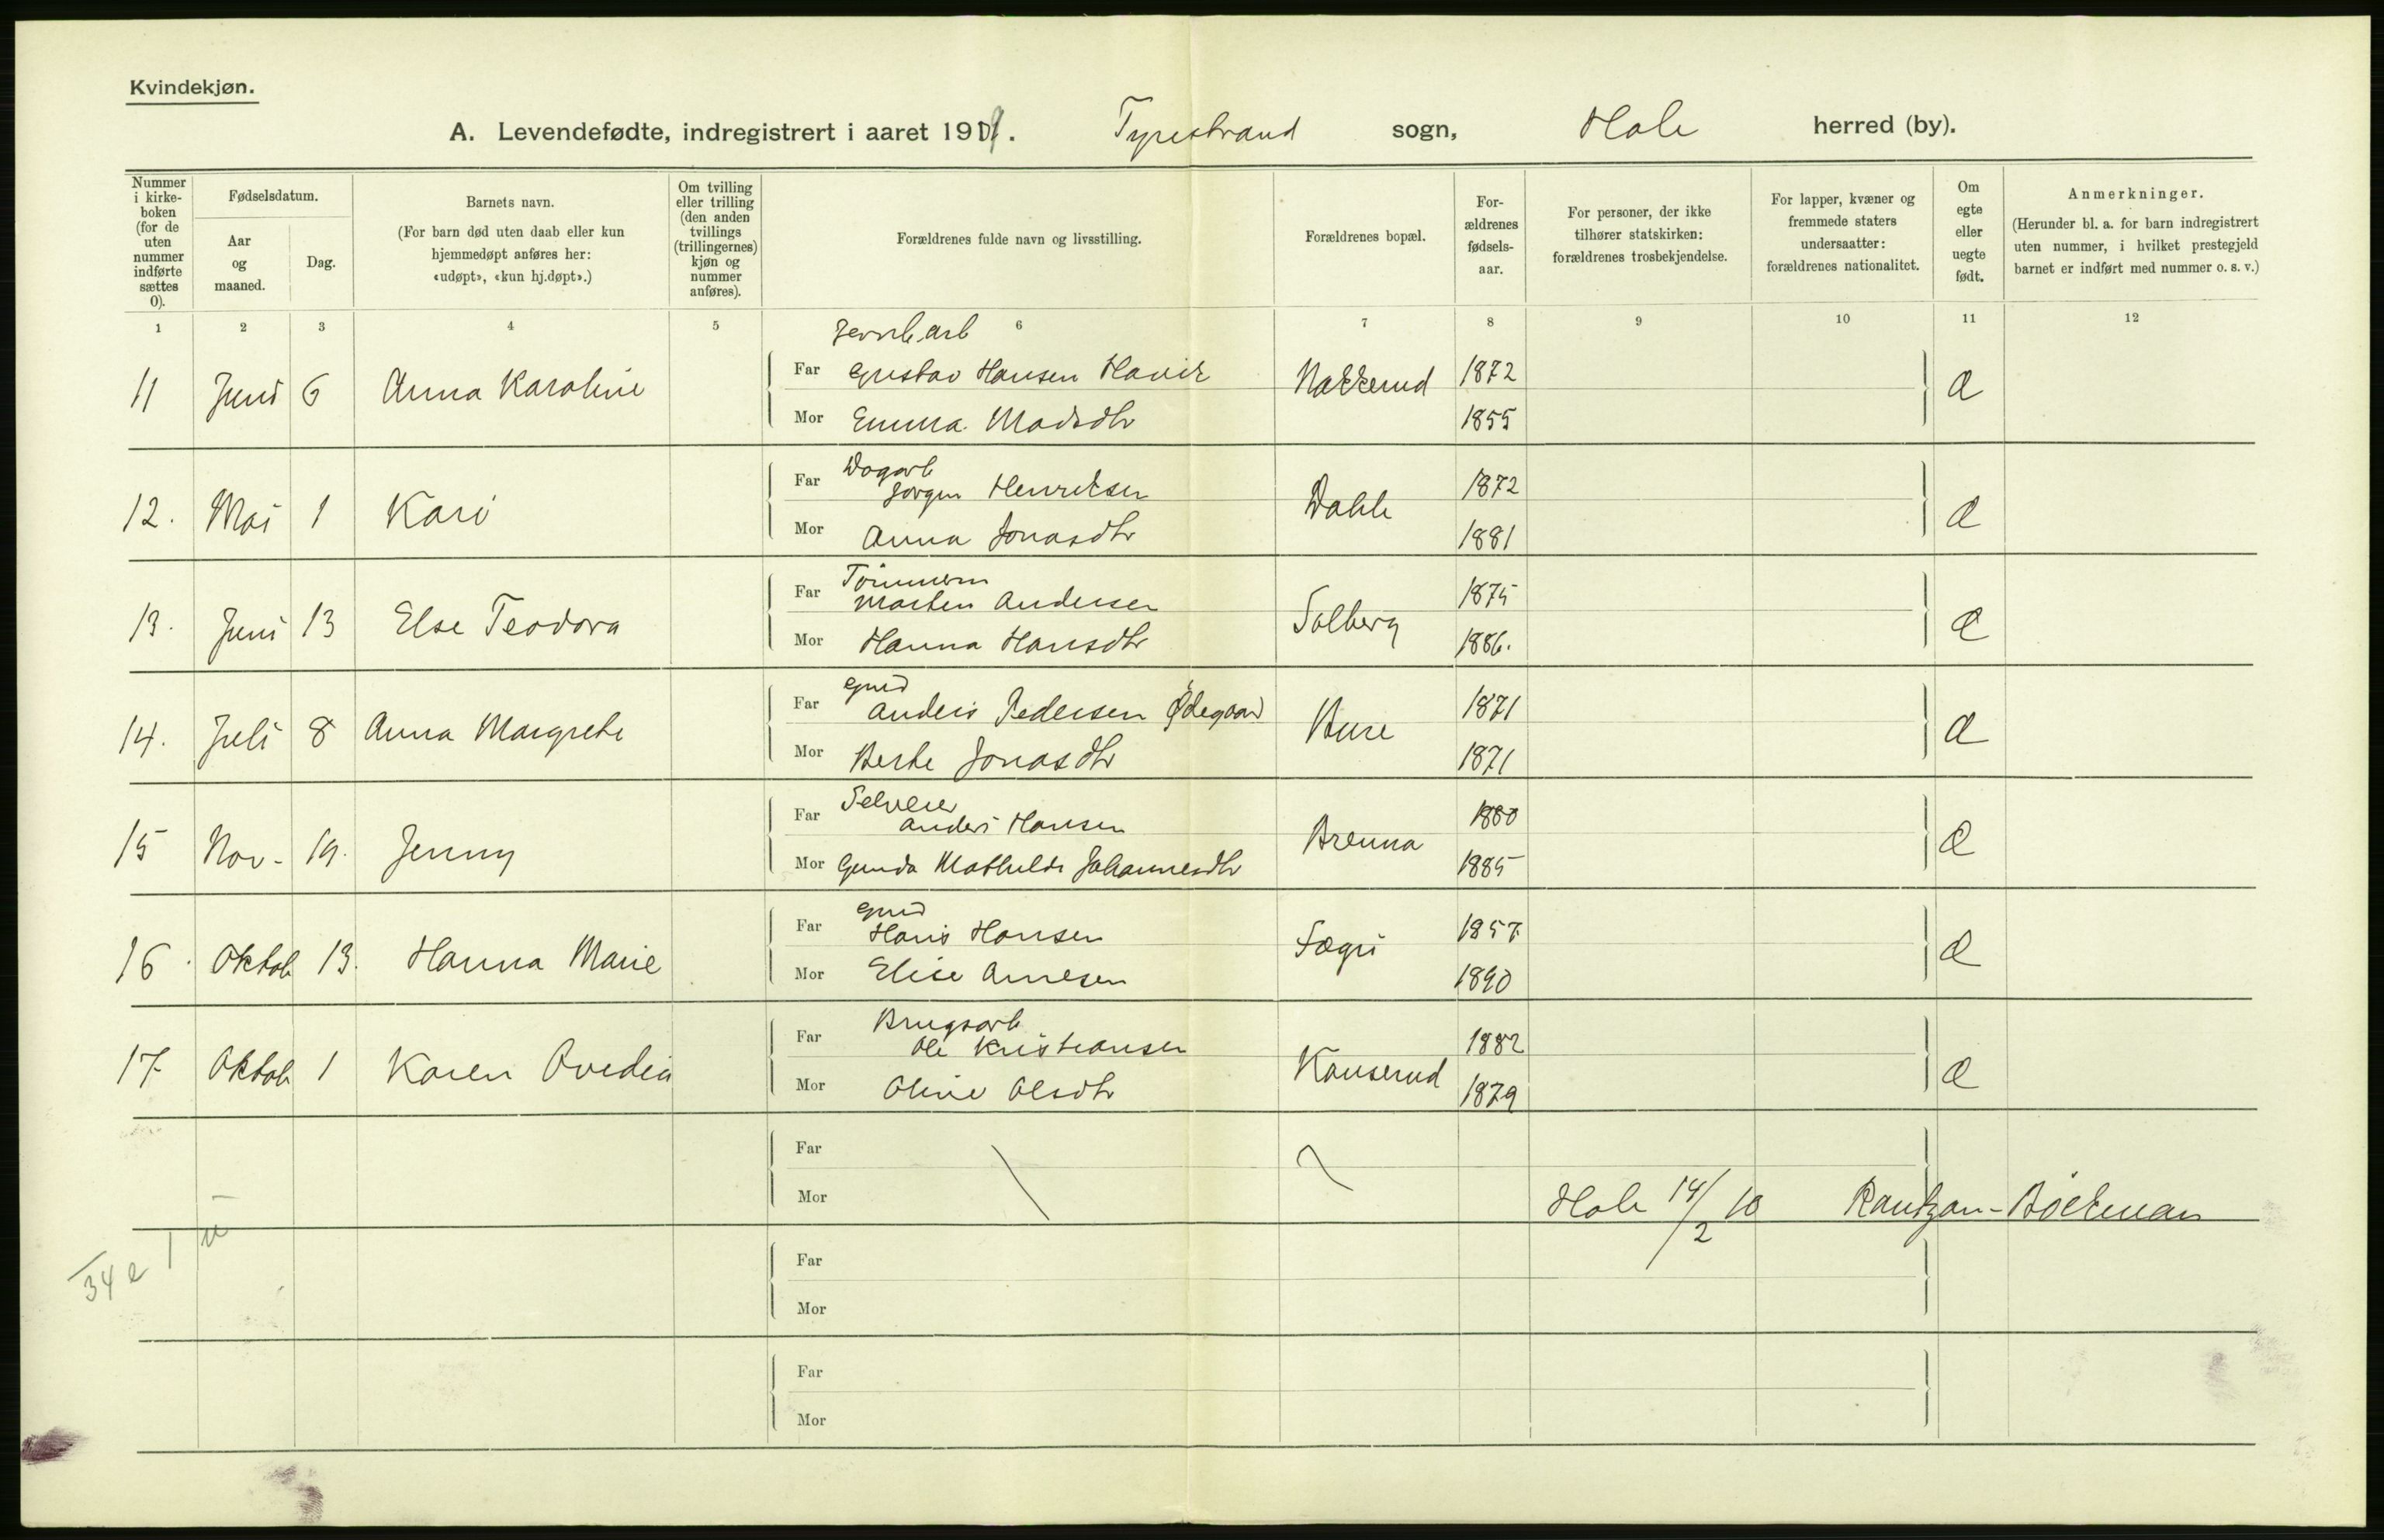 Kvindekjøn.
A. Levendefødte, indregistrert i aaret 1909. Tyristrand sogn, Hole herred (by).
Nummer i kirkeboken (for de uten nummer indførte sættes 0).
Fødselsdatum.
Aar og maaned.
Dag.
Barnets navn.
(For barn død uten daab eller kun hjemmedøpt anføres her: «udøpt», «kun hj.døpt».)
Om tvilling eller trilling (den anden tvillings (trillingernes) kjøn og nummer anføres).
Forældrenes fulde navn og livsstilling.
Forældrenes bopæl.
Forældrenes fødselsaar.
For personer, der ikke tilhører statskirken: forældrenes trosbekjendelse.
For lapper, kvæner og fremmede staters undersaatter: forældrenes nationalitet.
Om egte eller uegte født.
Anmerkninger.
(Herunder bl. a. for barn indregistrert uten nummer, i hvilket prestegjeld barnet er indført med nummer o. s. v.)
1 2 3 4 5 6 7 8 9 10 11 12
Jernb.arb
11 Juni 6 Anna Karoline Far Gustav Hansen Nakkerud 1872 Æ
Mor Emma Madsdtr 1855
Dagarb
12. Mai 1 Kari Far Jørgen Henriksen Dahle 1872 Æ
Mor Anna Jonasdtr 1881
Tømmerm
13. Juni 13 Else Teodora Far Marten Andersen Solberg 1875 Æ
Mor Hanna Hansdtr 1886.
Grd
14. Juli 8 Anna Margrete Far Anders Pedersen Ødegaard Bure 1871 Æ
Mor Berte Jonasdtr 1871
Selveier
15 Nov. 19. Jenny Far Anders Hansen Brenna 1880 Æ
Mor Gunda Mathilde Johannesdtr 1885
Grd
16. Oktob 13. Hanna Marie Far Hans Hansen Sogn 1857 Æ
Mor Elise Arnesen 1890
Brugsarb
17 Oktob 1 Karen Ovedia Far Ole Kristiansen Kamserud 1882 Æ
Mor Oline Olsdtr 1879
Far
Mor Hole 14/2 10 Rantzau-Böckman
34 e 1 u
Far
Mor
Far
Mor